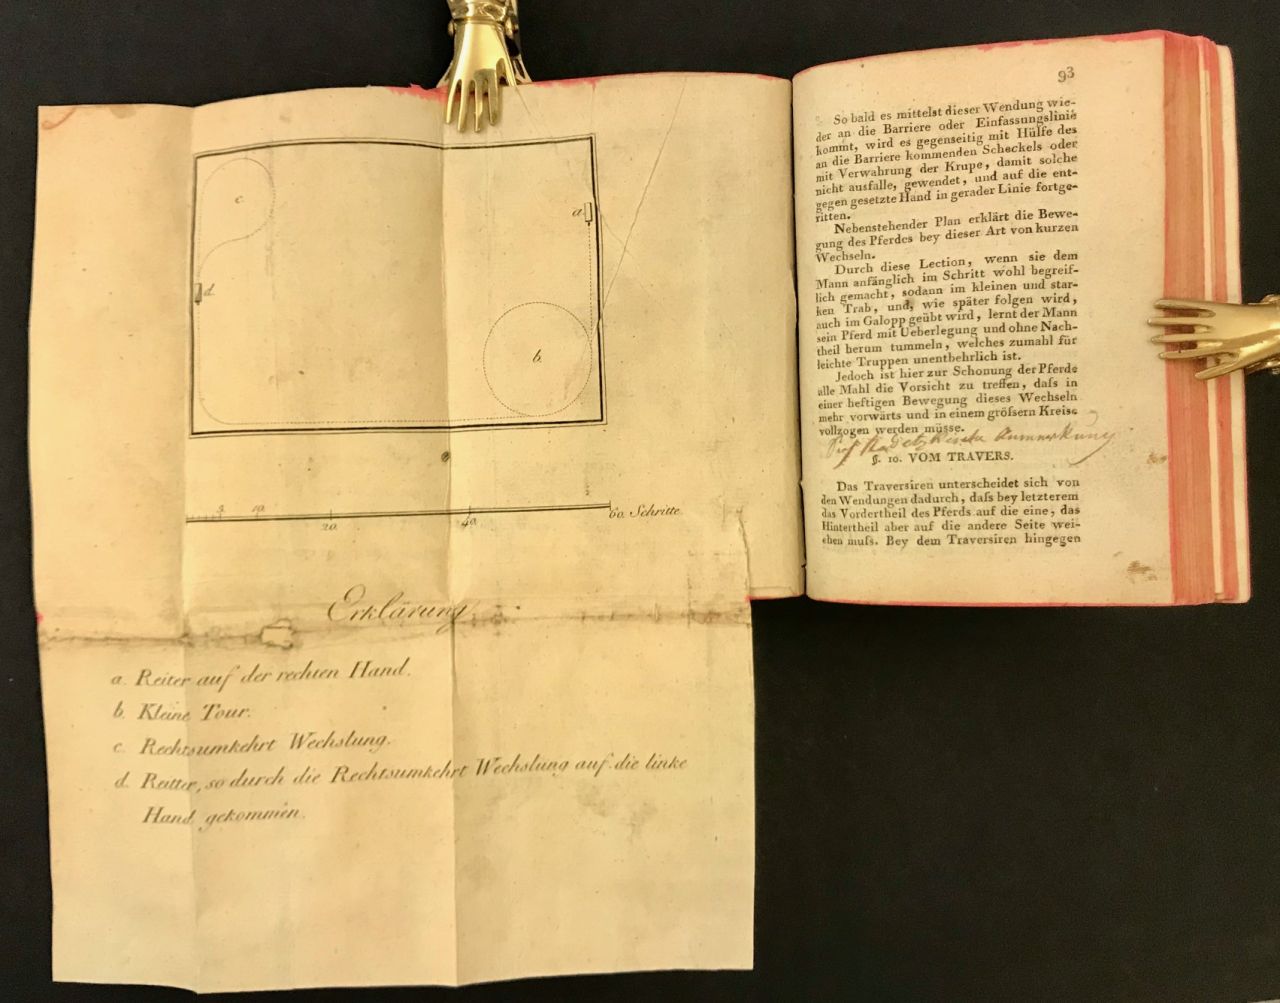 c.
a
d.
b.
5.
10.
20.
40.
60. Schritte
Erklärung
a. Reiter auf der rechten Hand.
b. Kleine Tour.
c. Rechtsumkehrt Wechslung.
d. Reitter, so durch die Rechtsumkehrt Wechslung auf die linke
Hand gekommen.
93
So bald es mittelst dieser Wendung wie-
der an die Barriere oder Einfassungslinie
kommt, wird es gegenseitig mit Hülfe des
an die Barriere kommenden Scheckels oder
mit Verwahrung der Krupe, damit solche
nicht ausfalle, gewendet, und auf die ent-
gegen gesetzte Hand in gerader Linie fortge-
ritten.
Nebenstehender Plan erklärt die Bewe-
gung des Pferdes bey dieser Art von kurzen
Wechseln.
Durch diese Lection, wenn sie dem
Mann anfänglich im Schritt wohl begreif-
lich gemacht, sodann im kleinen und star-
ken Trab, und, wie später folgen wird,
auch im Galopp geübt wird, lernt der Mann
sein Pferd mit Ueberlegung und ohne Nach-
theil herum tummeln, welches zumahl für
leichte Truppen unentbehrlich ist.
Jedoch ist hier zur Schonung der Pferde
alle Mahl die Vorsicht zu treffen, daſs in
einer heftigen Bewegung dieses Wechseln
mehr vorwärts und in einem gröſsern Kreise
vollzogen werden müsse.
Anmerkung
§. 10. VOM TRAVERS.
Das Traversiren unterscheidet sich von
den Wendungen dadurch, daſs bey letzterem
das Vordertheil des Pferds auf die eine, das
Hintertheil aber auf die andere Seite wei-
chen muſs. Bey dem Traversiren hingegen